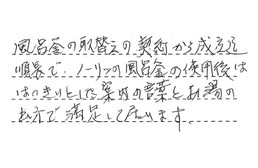 風呂釜の取替えの契約から成立迄
順長で、ノーリツの風呂釜の使用後は
はっきりとした案内の言葉とお湯の
出方で満足して居ります。